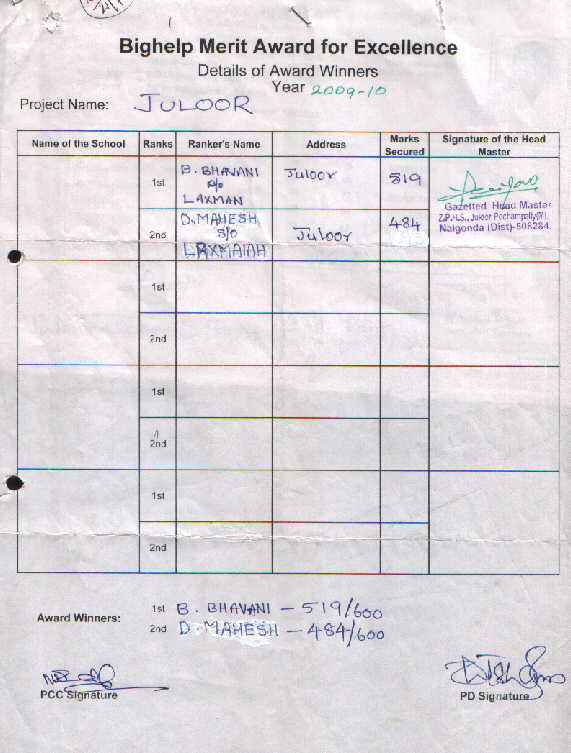 Bighelp Merit Award for Excellence
Details of Award Winners
Year 2009-10
Project Name: JULOOR
Name of the School Ranks Ranker's Name Address Marks Secured Signature of the Head Master
1st B. BHAVANI Juloor 519
D/o
LAXMAN
Gazetted Head Master
Z.P.H.S., Juloor Pochampally(M).
Nalgonda (Dist)-508284.
2nd D. MAHESH Juloor 484
S/o
LAXMAIAH
1st
2nd
1st
2nd
1st
2nd
Award Winners: 1st B. BHAVANI – 519/600
2nd D. MAHESH – 484/600
PCC Signature
PD Signature